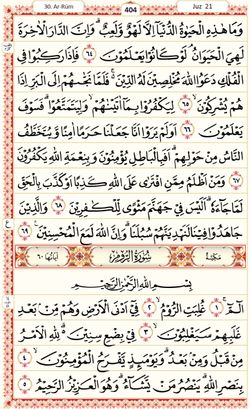 30. Ar-Rūm 404 Juz 21
وَمَا هَٰذِهِ الْحَيَوٰةُ الدُّنْيَآ إِلَّا لَهْوٌ وَلَعِبٌ ۚ وَإِنَّ الدَّارَ الْآخِرَةَ
لَهِيَ الْحَيَوَانُ ۚ لَوْ كَانُوا يَعْلَمُونَ ٦٤ فَإِذَا رَكِبُوا فِي
الْفُلْكِ دَعَوُا اللَّهَ مُخْلِصِينَ لَهُ الدِّينَ فَلَمَّا نَجَّىٰهُمْ إِلَى الْبَرِّ إِذَا
هُمْ يُشْرِكُونَ ٦٥ لِيَكْفُرُوا بِمَآ آتَيْنَٰهُمْ وَلِيَتَمَتَّعُوا ۖ فَسَوْفَ
يَعْلَمُونَ ٦٦ أَوَلَمْ يَرَوْا أَنَّا جَعَلْنَا حَرَمًا آمِنًا وَيُتَخَطَّفُ
النَّاسُ مِنْ حَوْلِهِمْ ۚ أَفَبِالْبَٰطِلِ يُؤْمِنُونَ وَبِنِعْمَةِ اللَّهِ يَكْفُرُونَ
٦٧ وَمَنْ أَظْلَمُ مِمَّنِ افْتَرَىٰ عَلَى اللَّهِ كَذِبًا أَوْ كَذَّبَ بِالْحَقِّ
لَمَّا جَآءَهُ ۚ أَلَيْسَ فِي جَهَنَّمَ مَثْوًى لِلْكَٰفِرِينَ ٦٨ وَالَّذِينَ
جَٰهَدُوا فِينَا لَنَهْدِيَنَّهُمْ سُبُلَنَا ۚ وَإِنَّ اللَّهَ لَمَعَ الْمُحْسِنِينَ ٦٩
مَكِّيَّة سُورَةُ الرُّومِ آيَاتُهَا ٦٠
بِسْمِ اللَّهِ الرَّحْمَٰنِ الرَّحِيمِ
الٓمٓ ١ غُلِبَتِ الرُّومُ ٢ فِيٓ أَدْنَى الْأَرْضِ وَهُمْ مِنْ بَعْدِ
غَلَبِهِمْ سَيَغْلِبُونَ ٣ فِي بِضْعِ سِنِينَ ۗ لِلَّهِ الْأَمْرُ
مِنْ قَبْلُ وَمِنْ بَعْدُ ۚ وَيَوْمَئِذٍ يَفْرَحُ الْمُؤْمِنُونَ ٤
بِنَصْرِ اللَّهِ ۚ يَنْصُرُ مَنْ يَشَآءُ ۖ وَهُوَ الْعَزِيزُ الرَّحِيمُ ٥